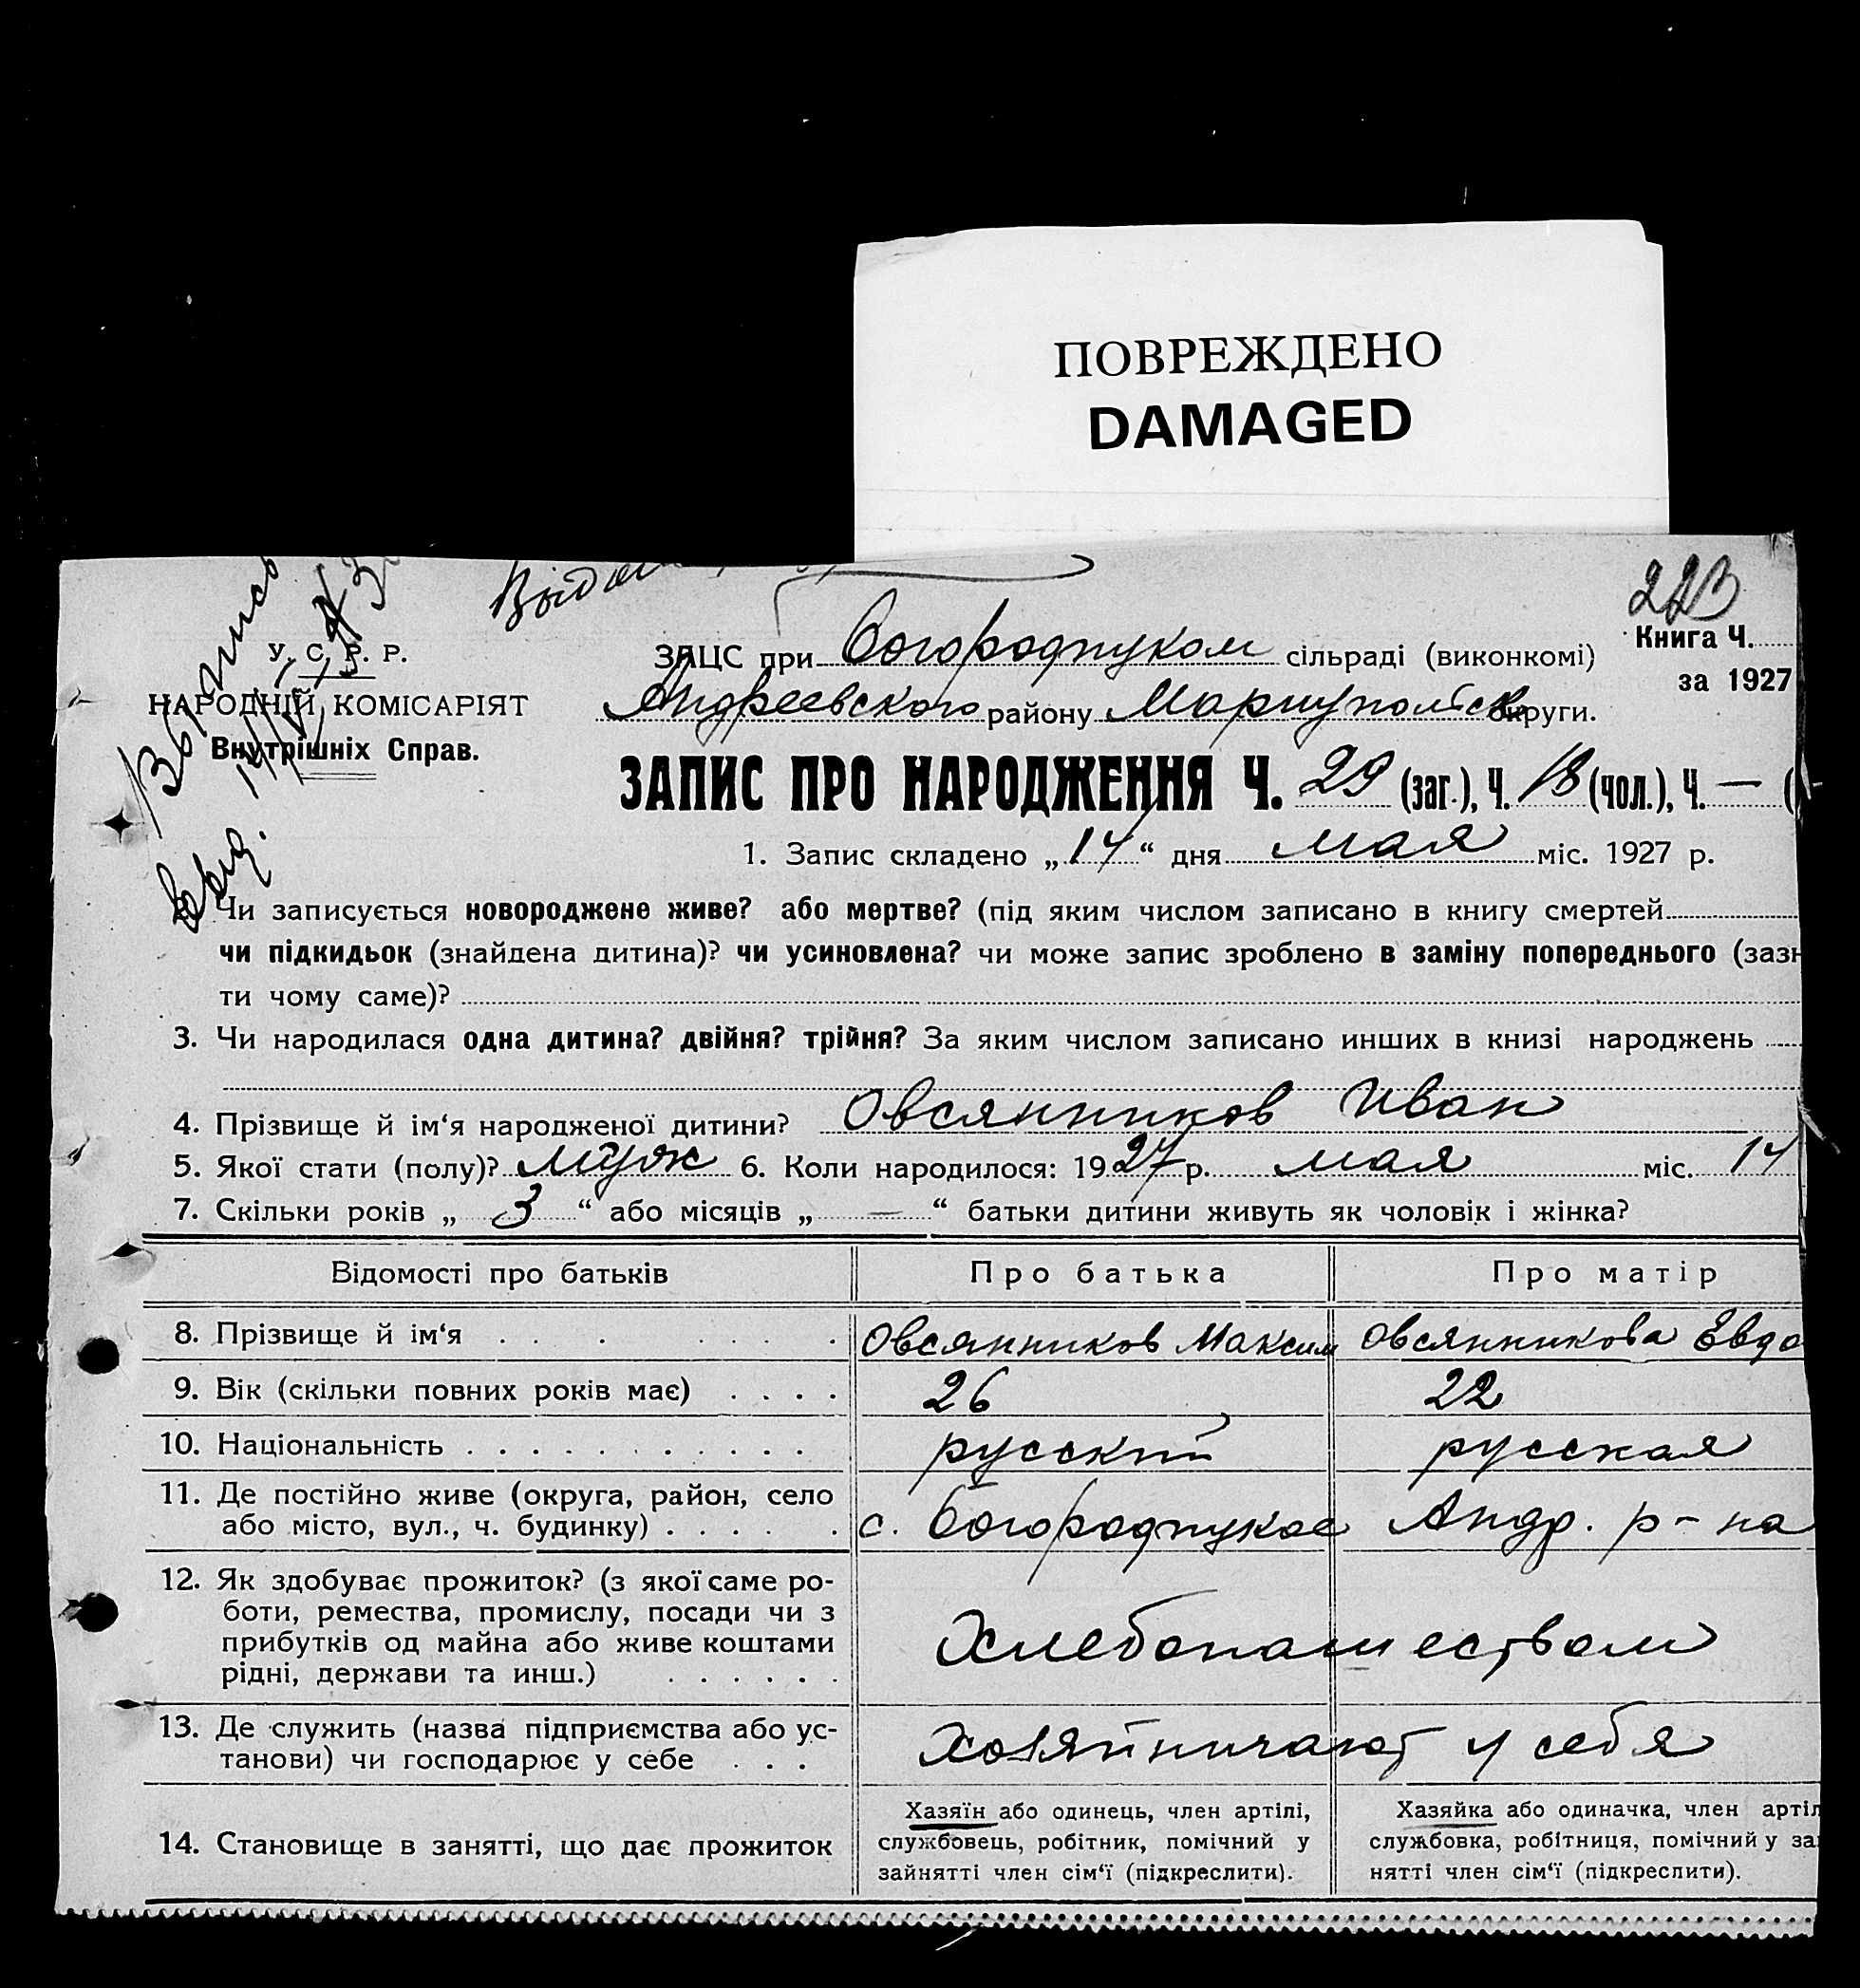 ПОВРЕЖДЕНО
DAMAGED
223
У. С. Р. Р.
НАРОДНІЙ КОМІСАРІЯТ
Внутрішніх Справ.
Книга Ч.
за 1927
ЗАЦС при сільраді (виконкомі)
Андреевского району Мариупольск округи.
ЗАПИС ПРО НАРОДЖЕННЯ Ч. 29 (заг.), Ч. 18 (чол.), Ч. — (
1. Запис складено „14“ дня мая міс. 1927 р.
Чи записується новороджене живе? або мертве? (під яким числом записано в книгу смертей
чи підкидьок (знайдена дитина)? чи усиновлена? чи може запис зроблено в заміну попереднього (зазн
ти чому саме)?
3. Чи народилася одна дитина? двійня? трійня? За яким числом записано инших в книзі народжень
4. Прізвище й ім‘я народженої дитини? Овсянников Иван
5. Якої стати (полу)? муж 6. Коли народилося: 1927 р. мая міс. 14
7. Скільки років „ 3 “ або місяців „ — “ батьки дитини живуть як чоловік і жінка?
Відомості про батьків Про батька Про матір
8. Прізвище й ім‘я Овсянников Максим Овсянникова Евдо
9. Вік (скільки повних років має) 26 22
10. Національність русский русская
11. Де постійно живе (округа, район, село
або місто, вул., ч. будинку) с. Андр. р-на
12. Як здобуває прожиток? (з якої саме ро-
боти, ремества, промислу, посади чи з
прибутків од майна або живе коштами
рідні, держави та инш.) Хлебопашеством
13. Де служить (назва підприємства або ус-
танови) чи господарює у себе хозяйничают у себя
14. Становище в занятті, що дає прожиток
Хазяїн або одинець, член артілі,
службовець, робітник, помічний у
зайнятті член сім‘ї (підкреслити).
Хазяйка або одиначка, член артіл
службовка, робітниця, помічний у за
нятті член сім‘ї (підкреслити).